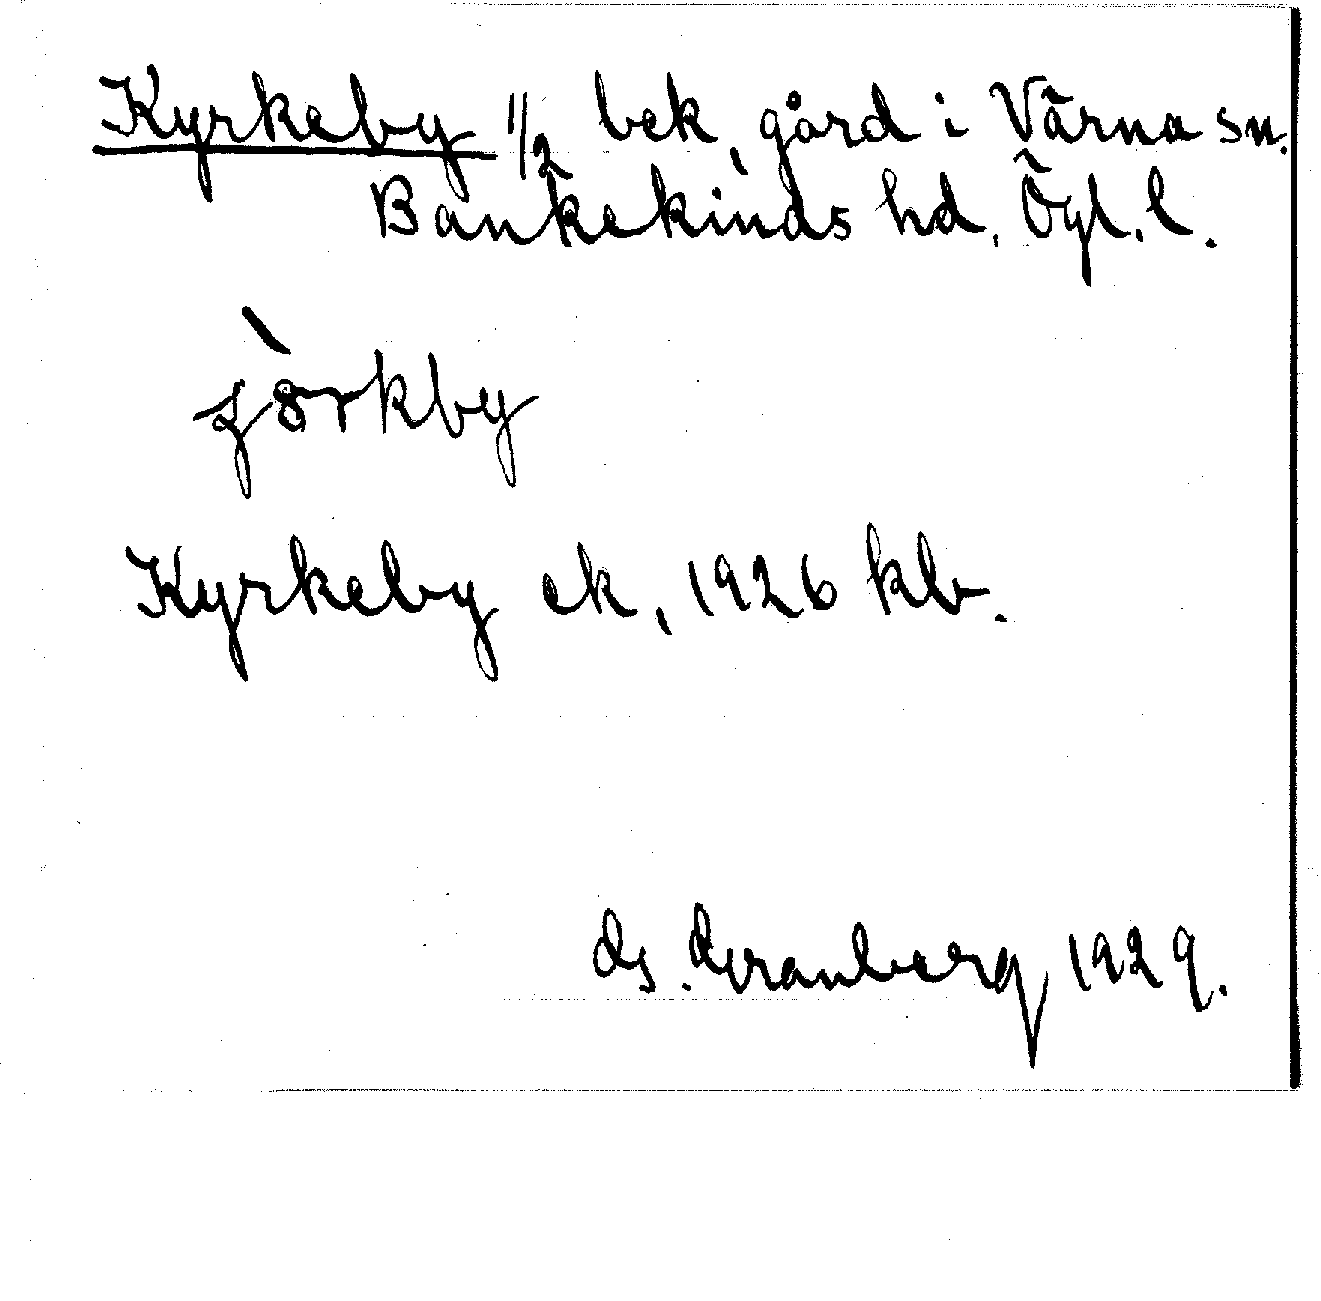 Kyrkeby 1/2 bek, gård i Värna sn.
Bankekinds hd. Ögl. l.
Kyrkeby ek, 1926 kb.
Gs. Granberg 1929.